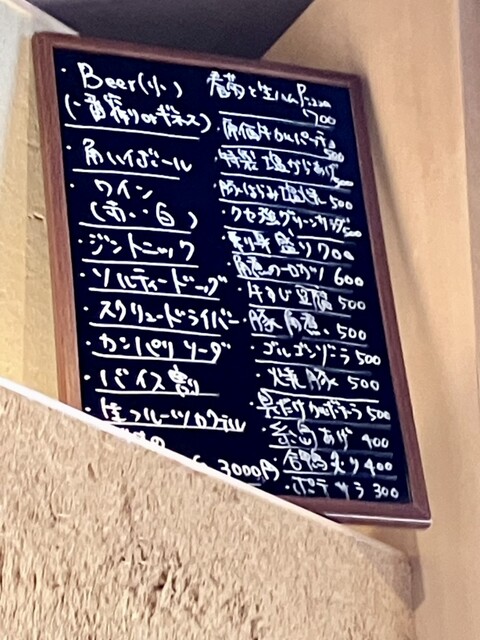 ・Beer(小)
(一番搾りorギネス)
・角ハイボール
・ワイン
(赤・白)
・ジントニック
・ソルティードッグ
・スクリュードライバー
・カンパリソーダ
・バイス割り
・生フルーツカクテル
3000円
と生ハムPizza
700
・原価牛カルパッチョ
500
特製塩からあげ
500
・豚はらみ塩焼 500
・クセ強グリーンサラダ 500
・刺身盛り 700
角煮の一口カツ 600
・牛すじ豆腐 500
・豚角煮 500
・ゴルゴンゾーラ 500
・焼豚 500
500
・糸島あげ 400
・合鴨炙り 400
・ポテサラ 300